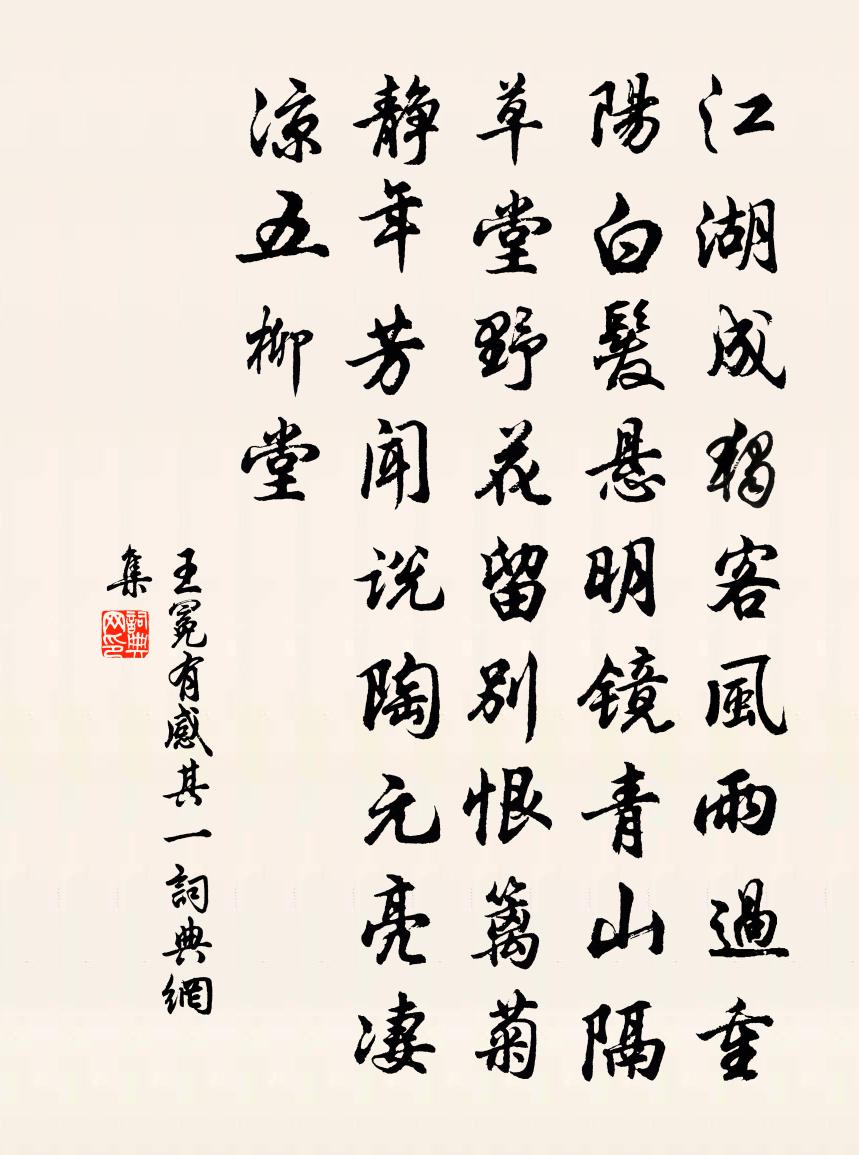 江湖成獨客風雨過重
陽白髮悬明镜青山隔
草堂野花留别恨籬菊
静年芳闻说陶元亮凄
凉五柳堂
王冕有感其一詞典網
集
詞典
网印